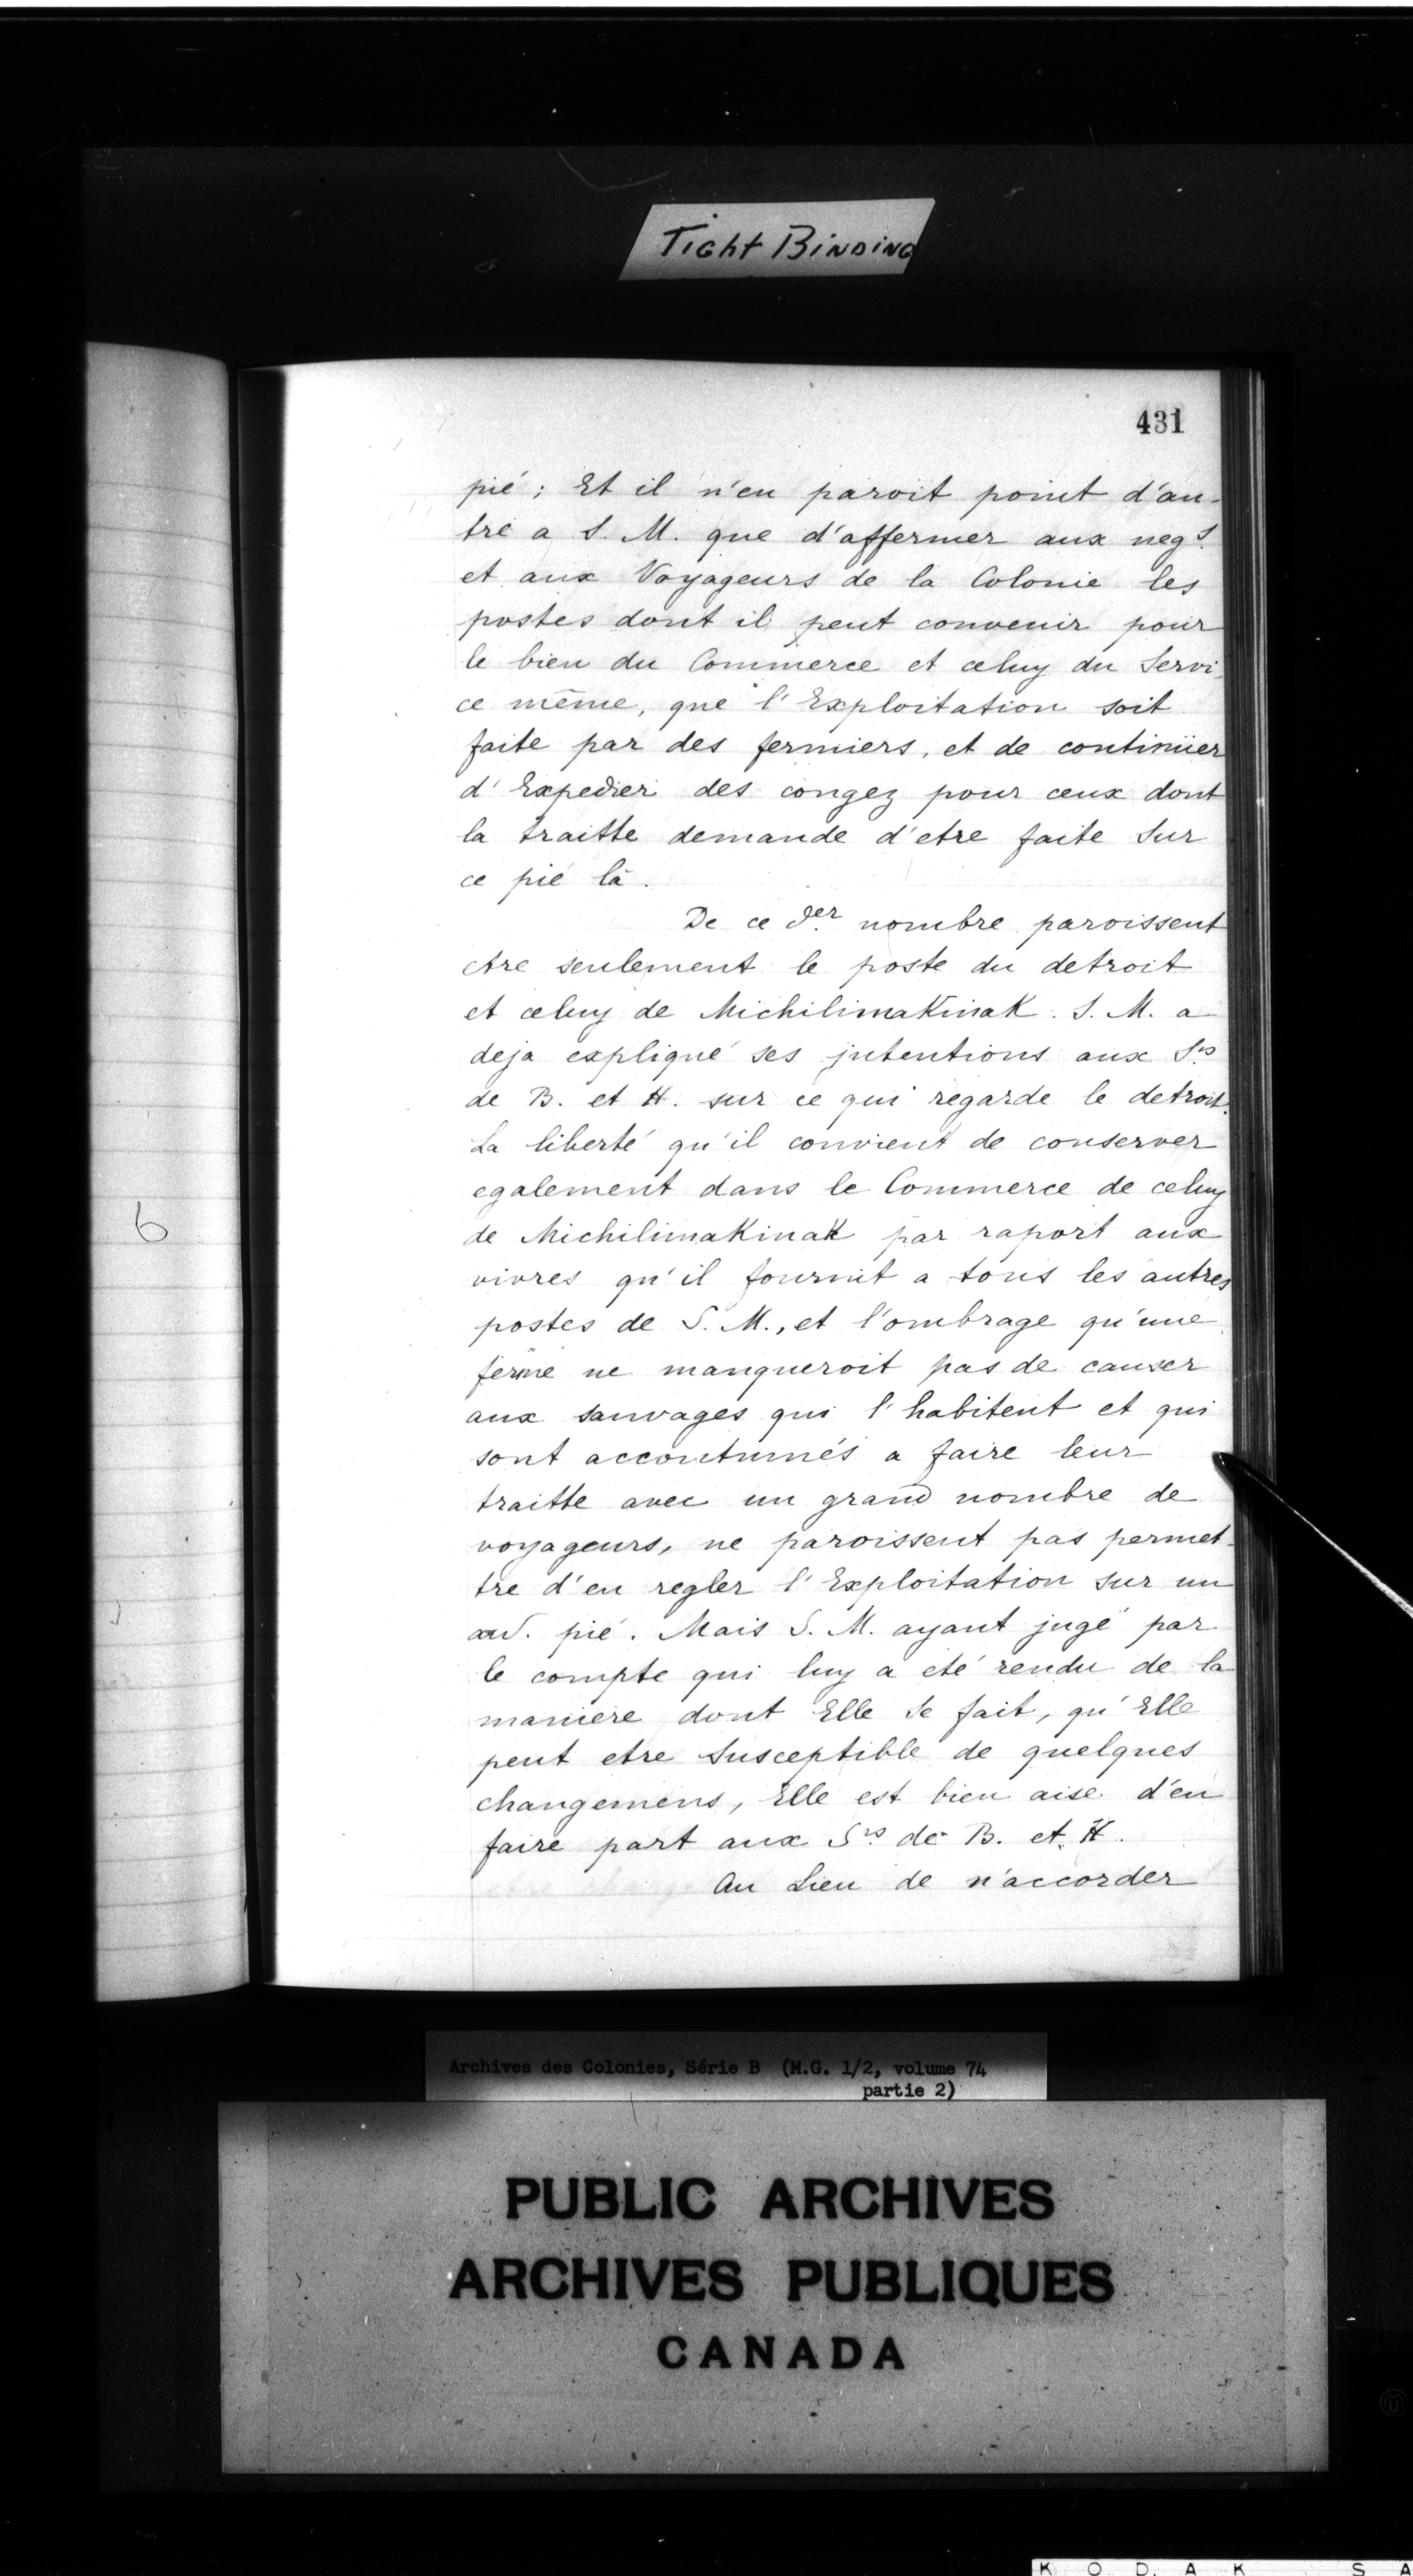 Tight Binding
431
pié ; Et il n'en paroit point d'au-
tre a S. M. que d'affermer aux negs.
et aux Voyageurs de la Colonie les
postes dont il peut convenir pour
le bien du Commerce et celuy du Servi-
ce même, que l'Exploitation soit
faite par des fermiers, et de continüer
d'Expedier des congez pour ceux dont
la traitte demande d'etre faite Sur
ce pié là.
De ce der. nombre paroissent
etre seulement le poste du detroit
et celuy de MichilimaKinaK. S. M. a
deja expliqué ses jntentions aux Srs
de B. et H. sur ce qui regarde le detroit.
La liberté qu'il convient de conserver
egalement dans le Commerce de celuy
de MichilimaKinaK par raport aux
vivres qu'il fournit a tous les autres
postes de S. M., et l'ombrage qu'une
ferme ne manqueroit pas de causer
aux sauvages qui l'habitent et qui
sont accoutumés a faire leur
traitte avec un grand nombre de
voyageurs, ne paroissent pas permet-
tre d'en regler l'Exploitation sur un
pié. Mais S. M. ayant jugé par
le compte qui luy a eté rendu de la
maniere dont Elle Se fait, qu'Elle
peut etre Susceptible de quelques
changemens, Elle est bien aise d'en
faire part aux Srs de B. et H.
Au Lieu de n'accorder
6
Archives des Colonies, Série B (M.G. 1/2, volume 74
partie 2)
PUBLIC ARCHIVES
ARCHIVES PUBLIQUES
CANADA
K O D A K S A